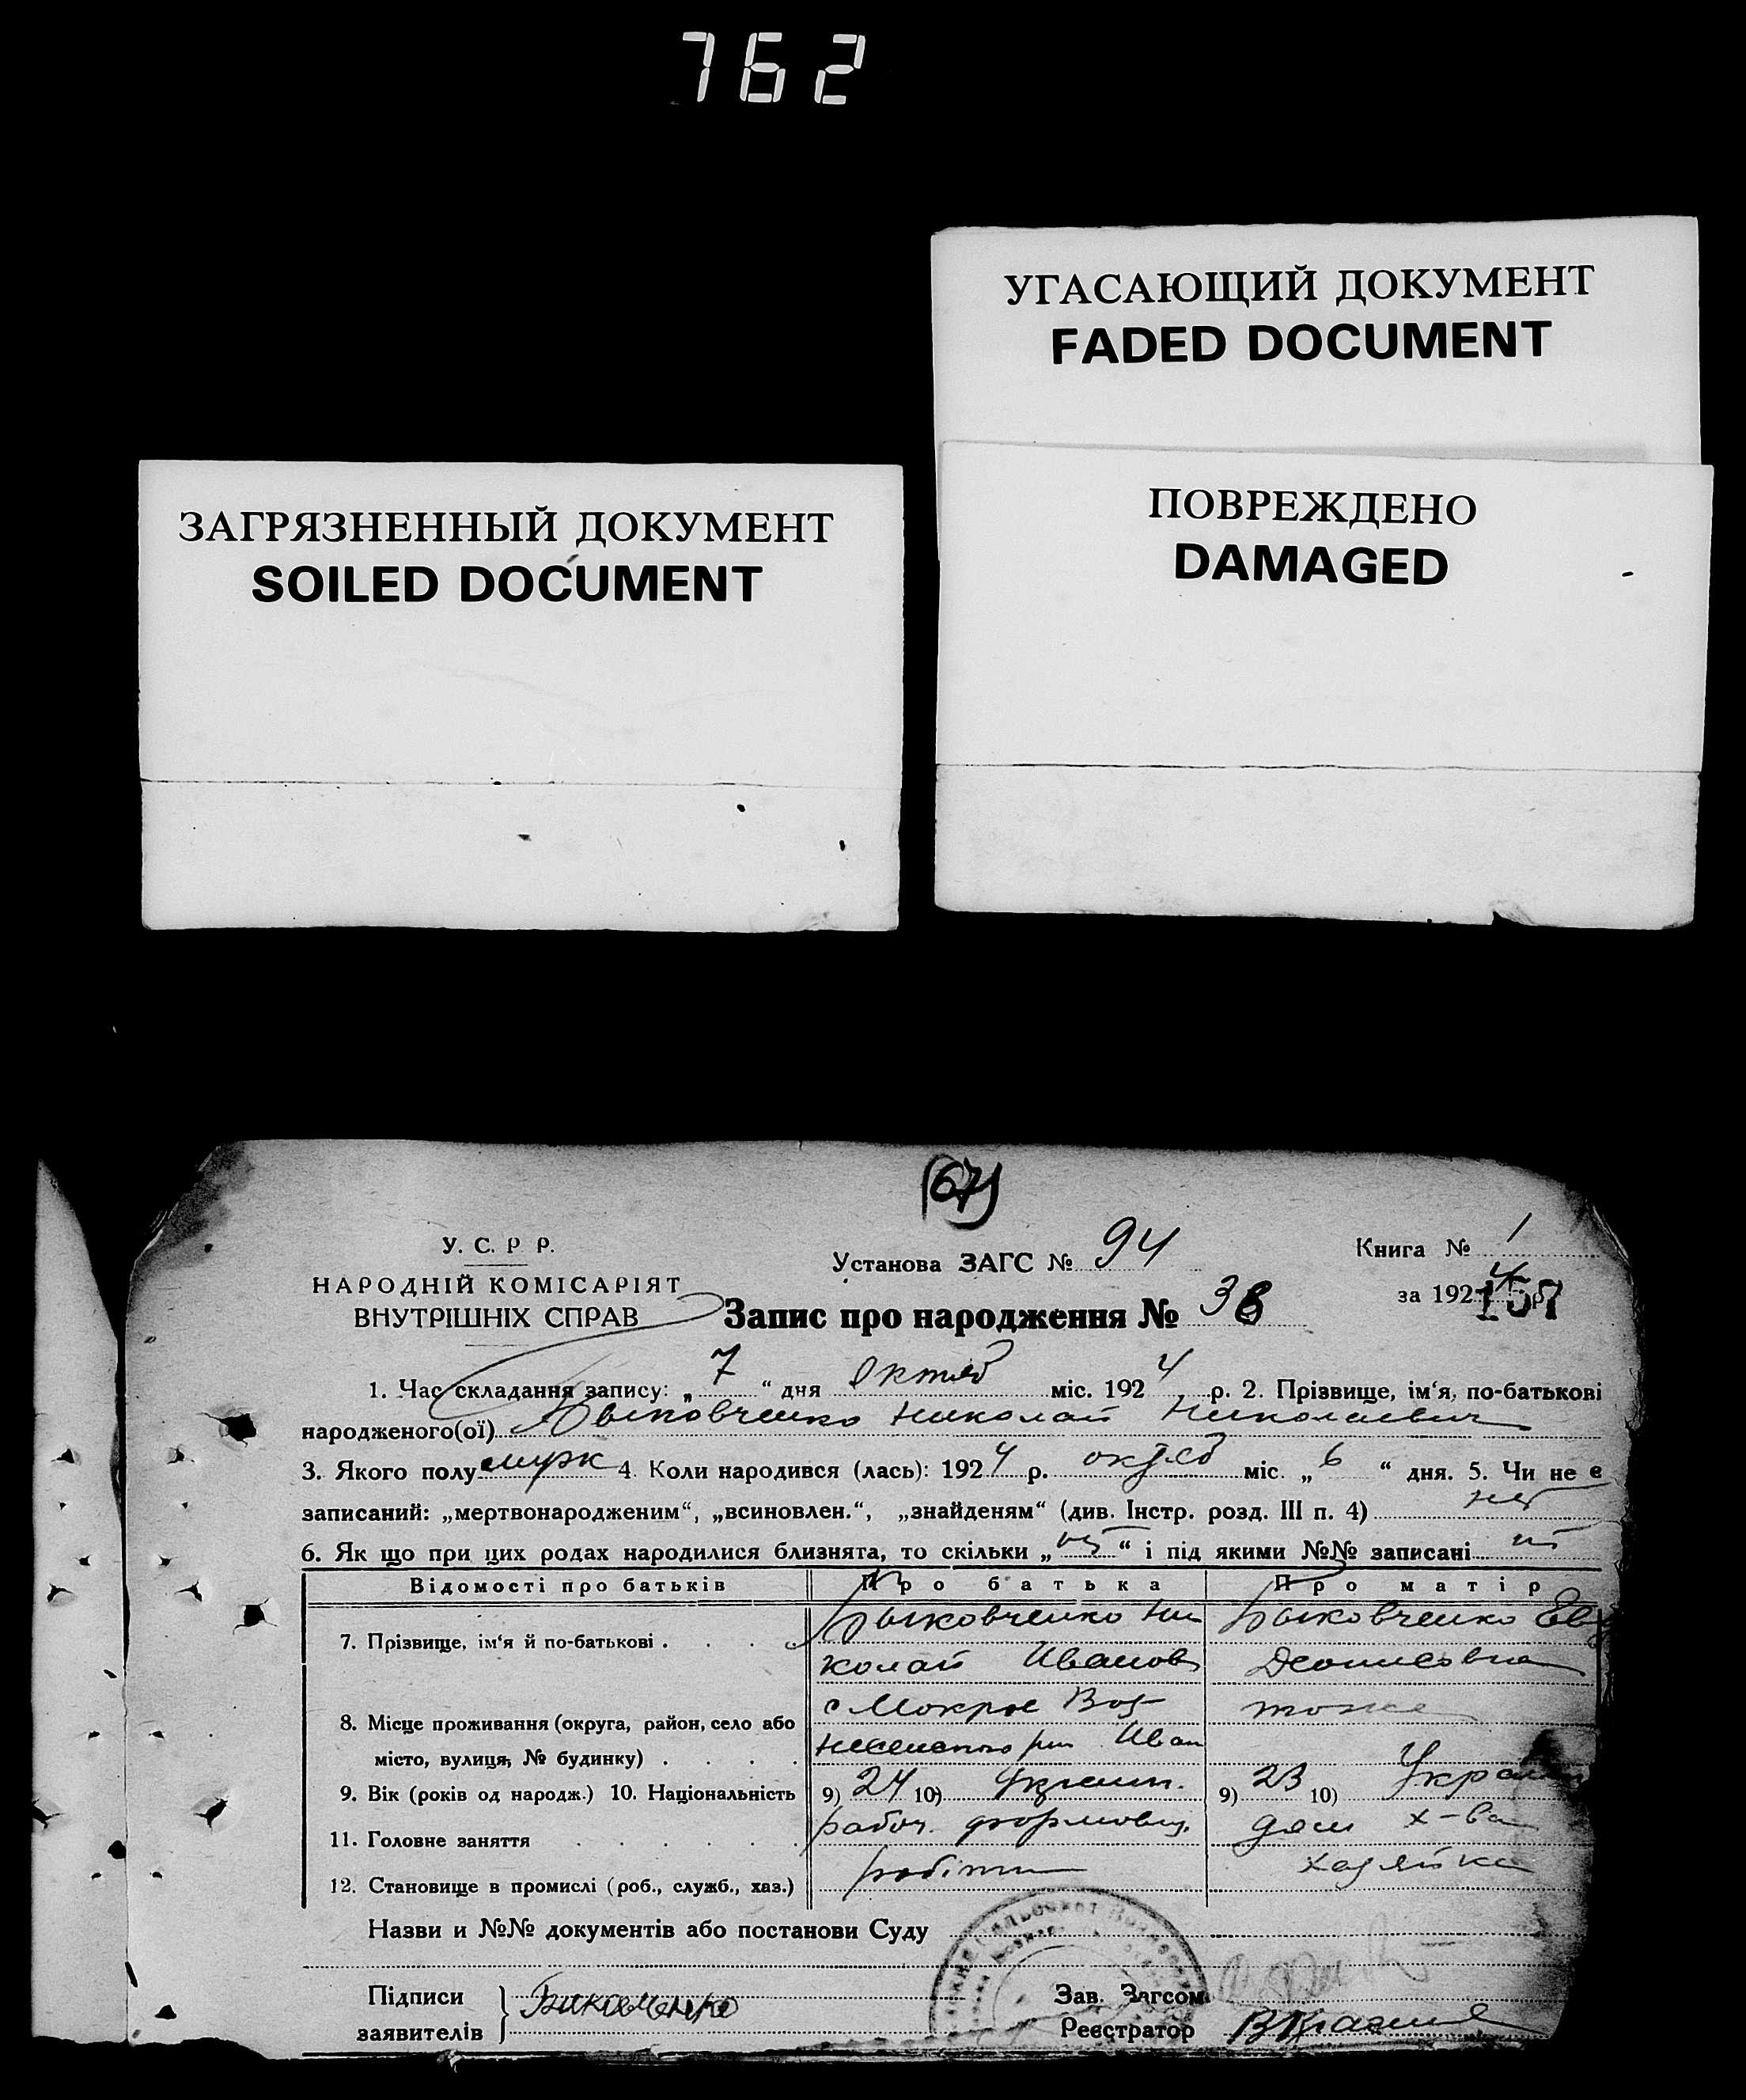 762
УГАСАЮЩИЙ ДОКУМЕНТ
FADED DOCUMENT
ЗАГРЯЗНЕННЫЙ ДОКУМЕНТ
SOILED DOCUMENT
ПОВРЕЖДЕНО
DAMAGED
(67)
У. С. Р Р.
НАРОДНІЙ КОМІСАРІЯТ
ВНУТРІШНІХ СПРАВ
Установа ЗАГС № 94
Книга № 1
за 1924 р.
157
Запис про народження № 38
1. Час складання запису: „ 7 “ дня октяб міс. 1924 р. 2. Прізвище, ім‘я, по-батькові
народженого(ої) Быковченко Николай Николаевич
3. Якого полу мужк 4. Коли народився (лась): 1924 р. октяб міс. „ 6 “ дня. 5. Чи не є
записаний: „мертвонародженим“, „всиновлен.“, „знайденям“ (див. Інстр. розд. III п. 4) нет
6. Як що при цих родах народилися близнята, то скільки „ “ і під якими №№ записані
Відомості про батьків Про батька Про матір
7. Прізвище, ім‘я й по-батькові . . . .
Быковченко Ни
колай Иванов
Быковченко Ев
Денисовна
8. Місце проживання (округа, район, село або
місто, вулиця, № будинку) . . . .
с Мокрое Воз
Иван
тоже
9. Вік (років од народж.) 10. Національність 9) 24 10) Украин. 9) 23 10) Украин
11. Головне заняття . . . . . . рабоч. формовщ. дом х-ва
12. Становище в промислі (роб., служб., хаз.) робітн хазяйка
Назви и №№ документів або постанови Суду
Підписи
заявителів
Биковченко
Зав. Загсом
Реєстратор